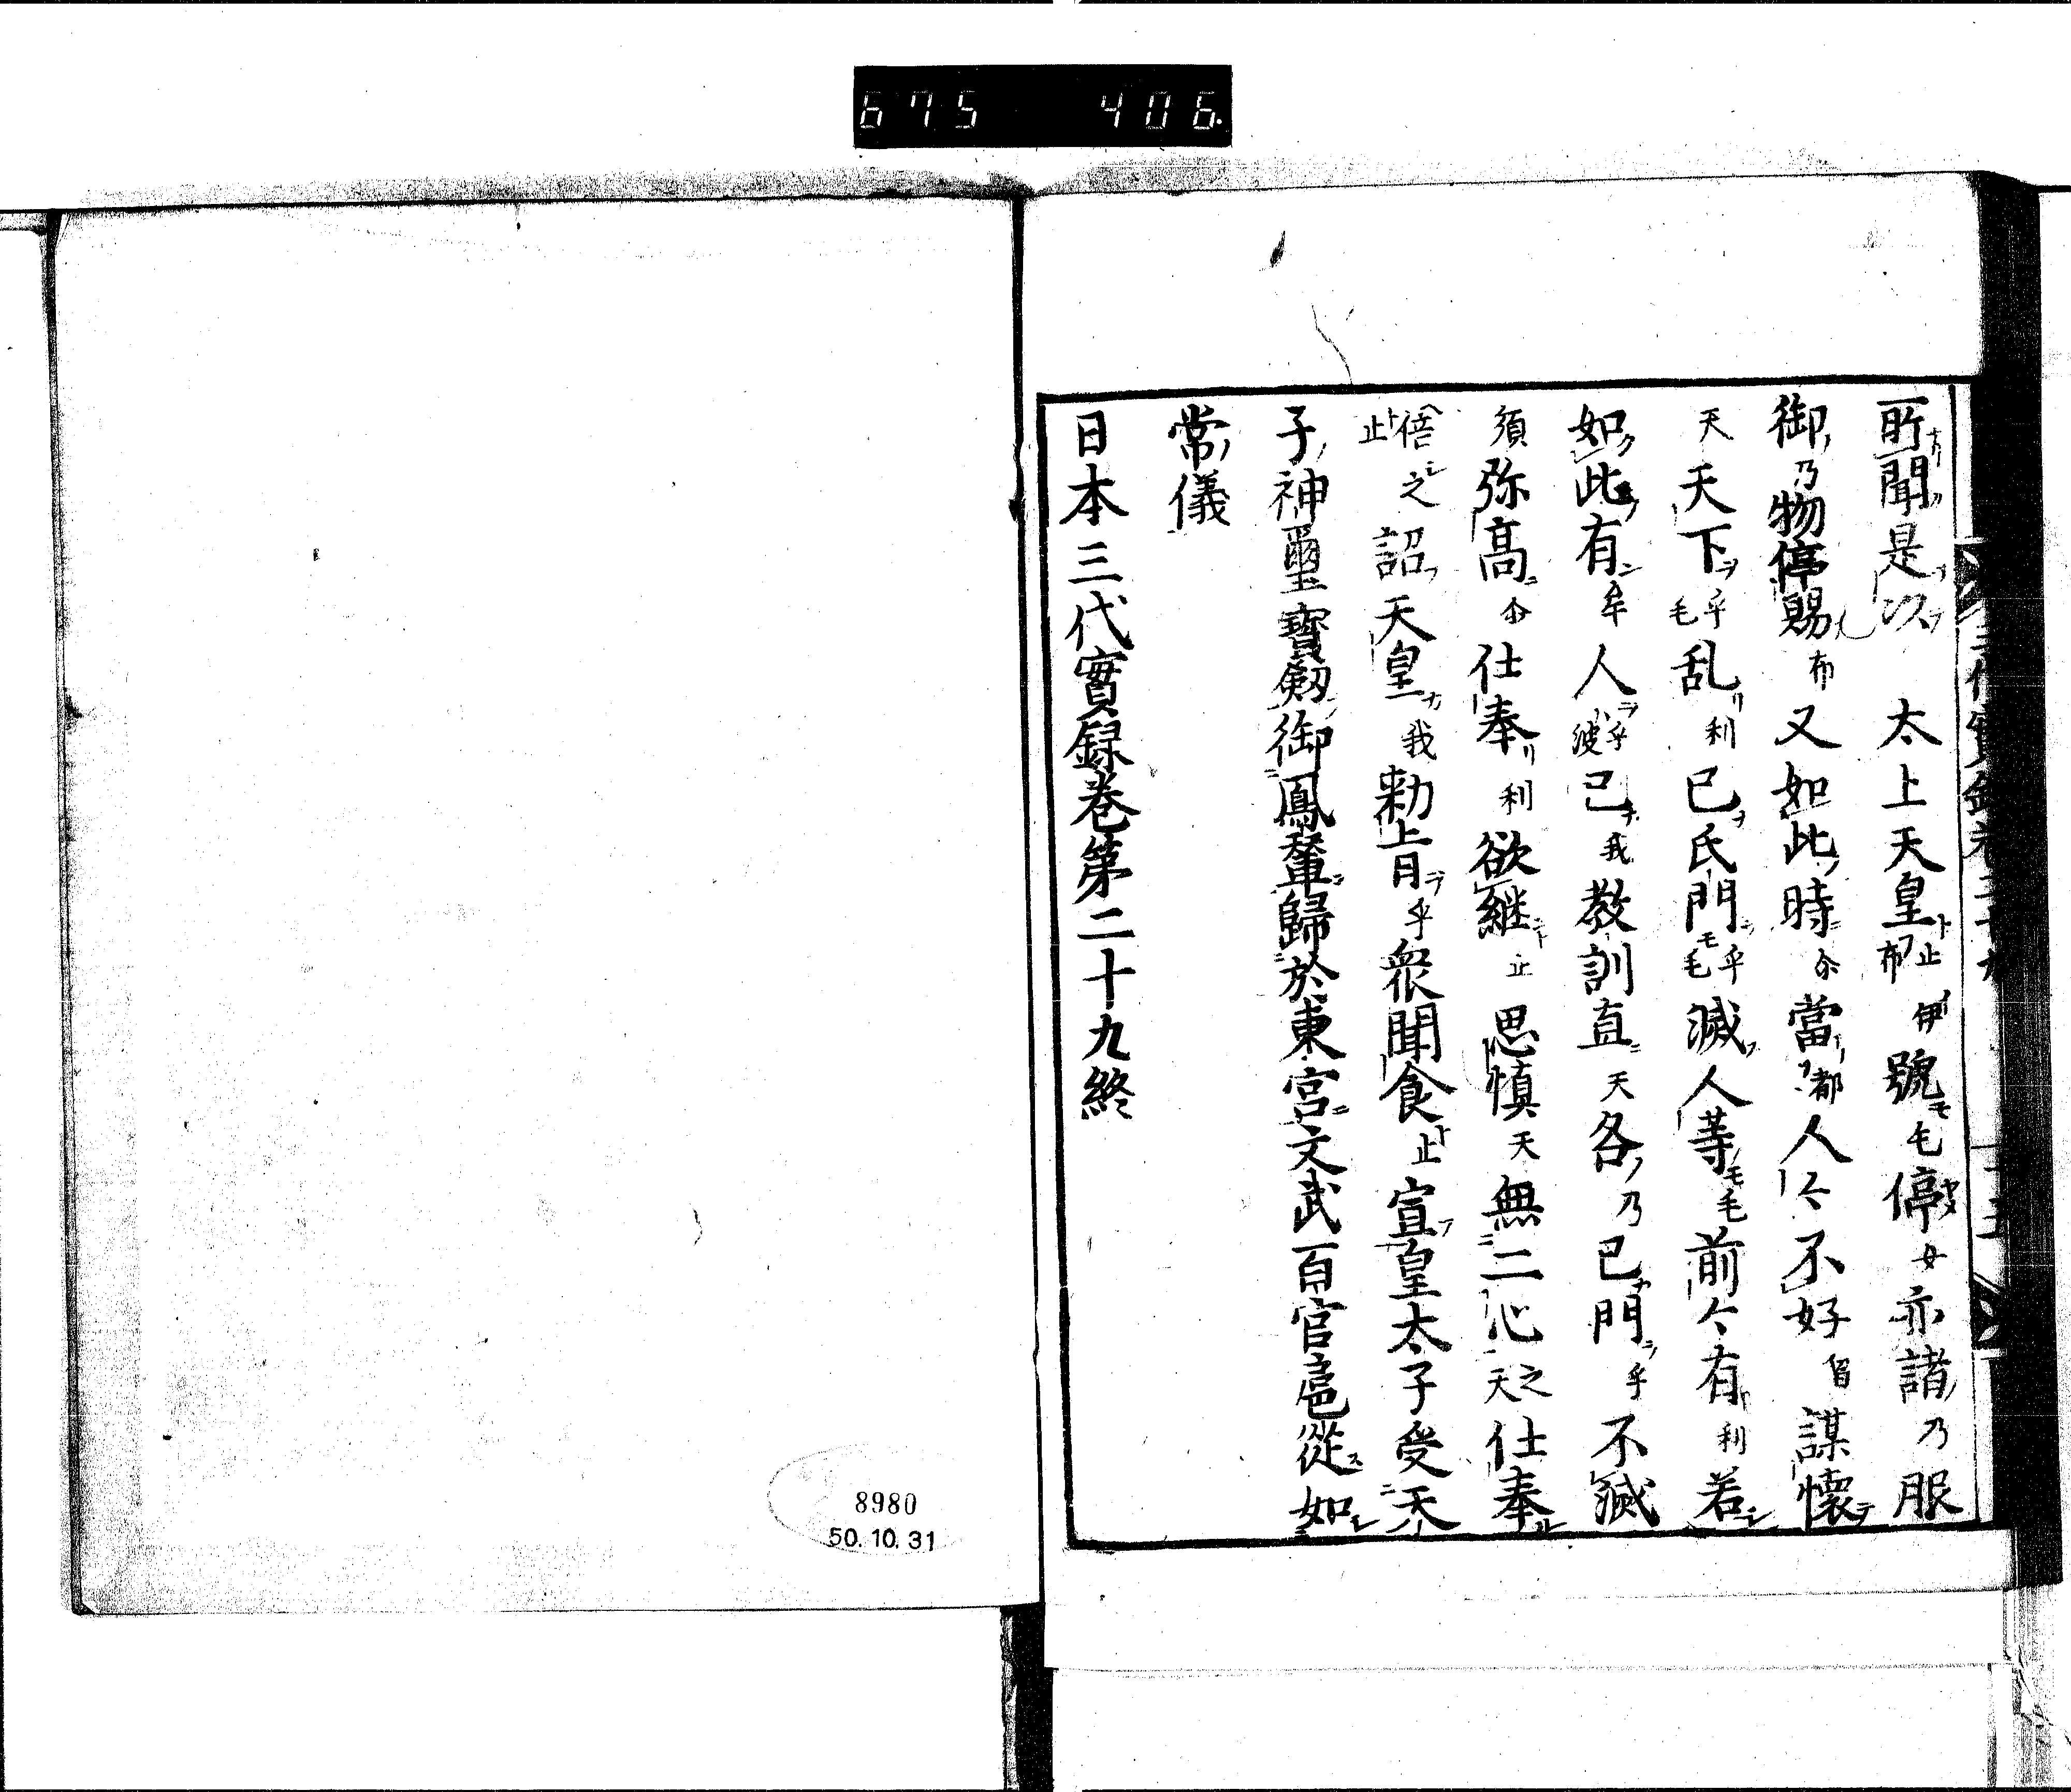 675 406.
所聞是以太上天皇止布伊號毛停女亦諸乃服
御乃物停賜布又如此時尒當都人々不好留謀懷
天天下乎毛乱利己氏門乎毛滅人等毛前々有利若
如此有牟人乎波己我教訓直天各乃己門乎不滅
須弥高尒仕奉利欲継止思慎天無二心之天仕奉
倍之止詔天皇我勅旨乎衆聞食止宣皇太子受天
子神璽寳劔御鳳輦歸於東宮文武百官扈從如
常儀
日本三代實録巻第二十九終
8980
50.10.31